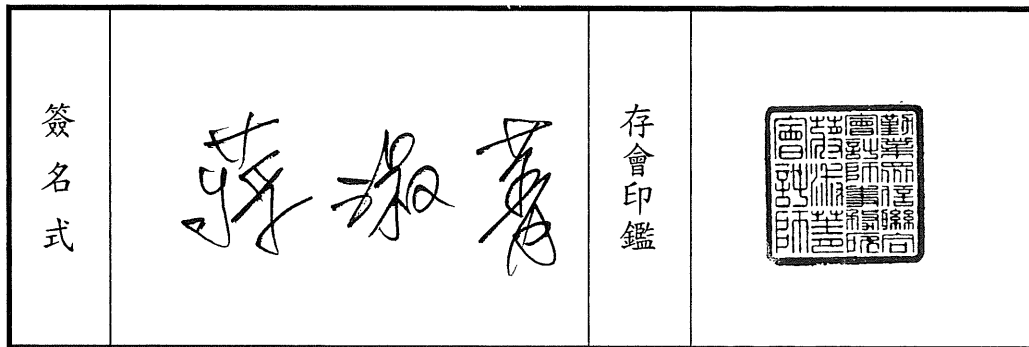 簽名式
蔣淑菁
存會印鑑
勤業眾信聯合
會計師事務所
蔣淑菁
會計師